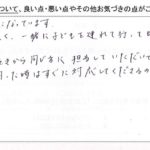 ついて、良い点・悪い点やその他お気づきの点がご
になっています。
く、一緒に子どもを連れて行って
さから同じ方に担当していただいて
った時はすぐに対応してくださるの